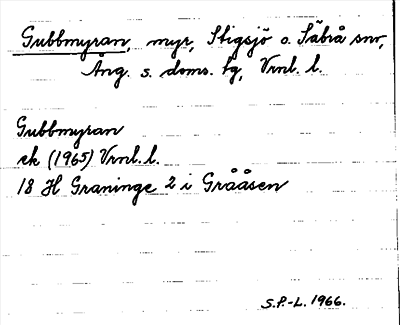 Gubbmyran, myr, Stigsjö o. Säbrå snr,
Ång. s. doms. tg, Vrnl. l.
Gubbmyran
ek (1965) Vrnl. l.
18 H Graninge 2 i Grååsen
S.P.-L. 1966.